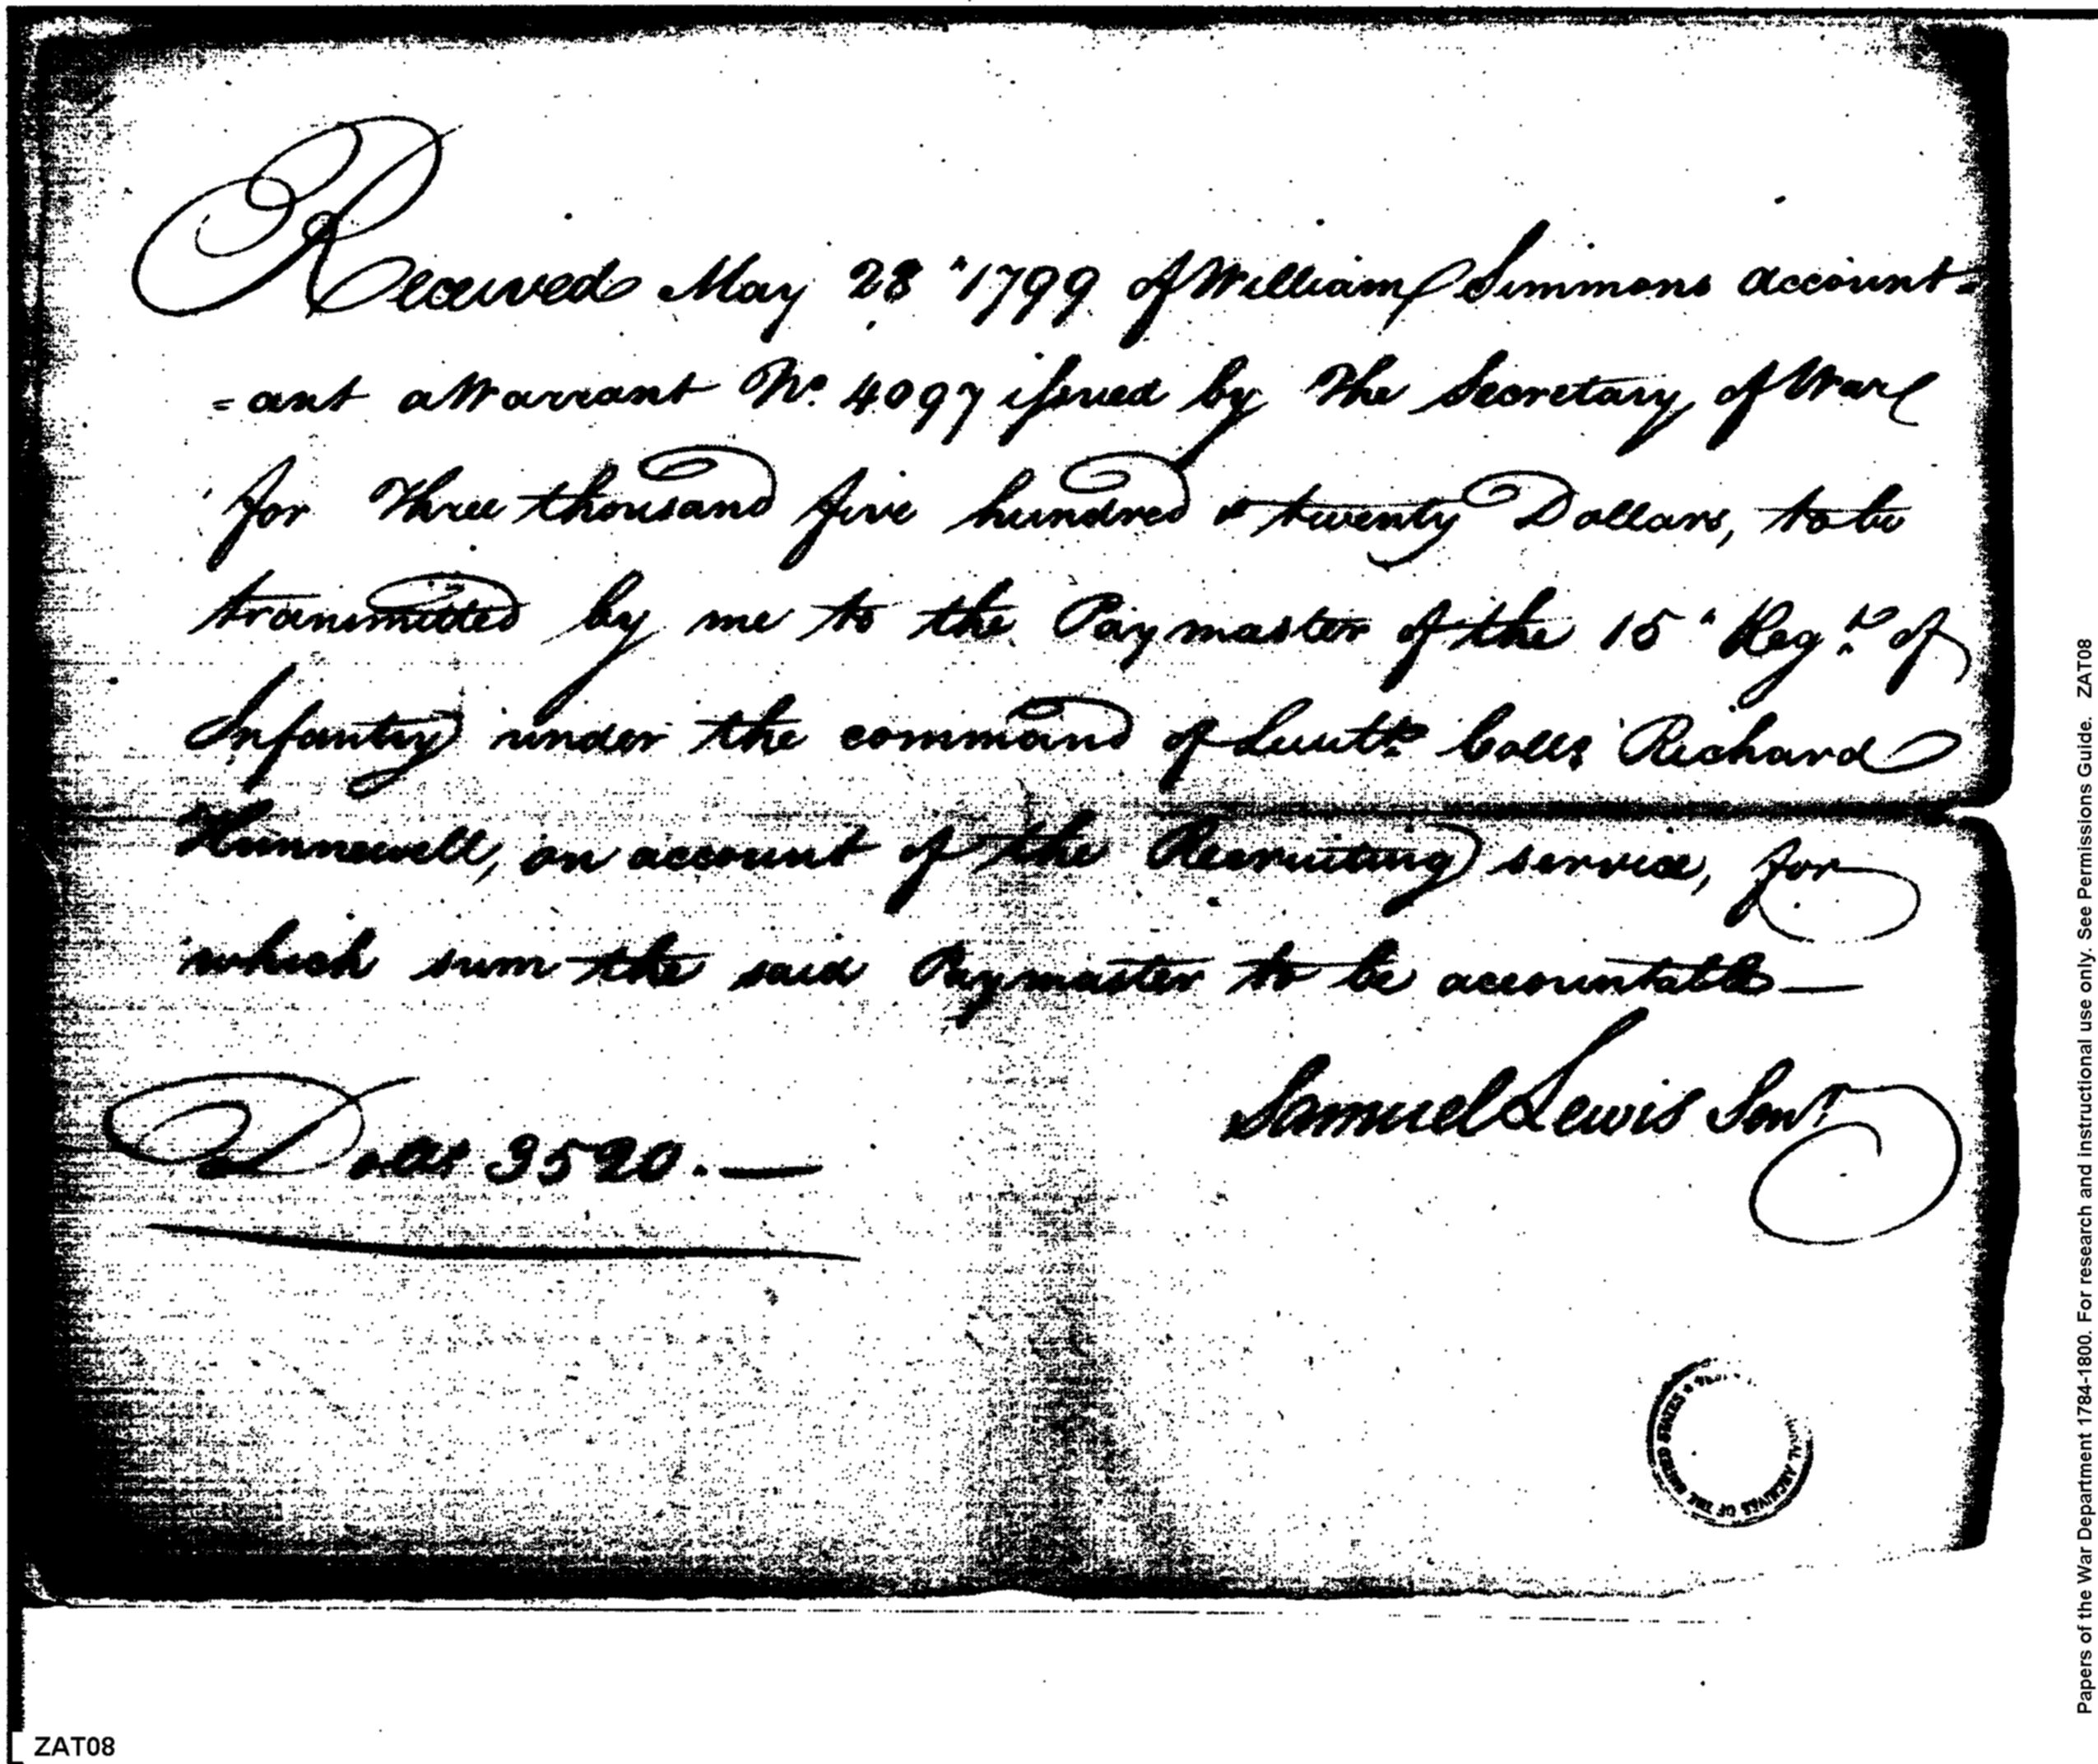 Received May 28" 1799 of William Simmons account=
=ant a Warrant No. 4097 issued by the Secretary of War
for Three thousand five hundred & twenty Dollars, to be
transmitted by me to the Paymaster of the 15" Regt. of
Infantry under the command of Lieutt. Coll: Richard
Hunnewell, on account of the Recruiting service, for
which sum the said Paymaster to be accountable—
Samuel Lewis Senr
Dollars 3520.—
ARCHIVES OF THE UNITED STATES
ZAT08
Papers of the War Department 1784-1800. For research and instructional use only. See Permissions Guide. ZAT08